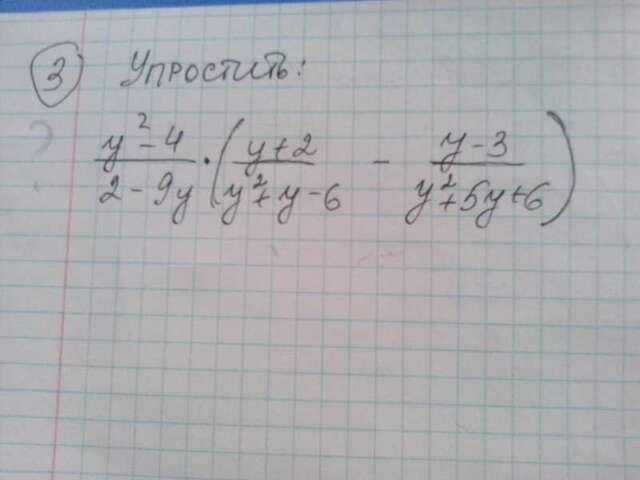 ③ Упростить:
(y² - 4)/(2 - 9y) · ((y + 2)/(y² + y - 6) - (y - 3)/(y² + 5y + 6))